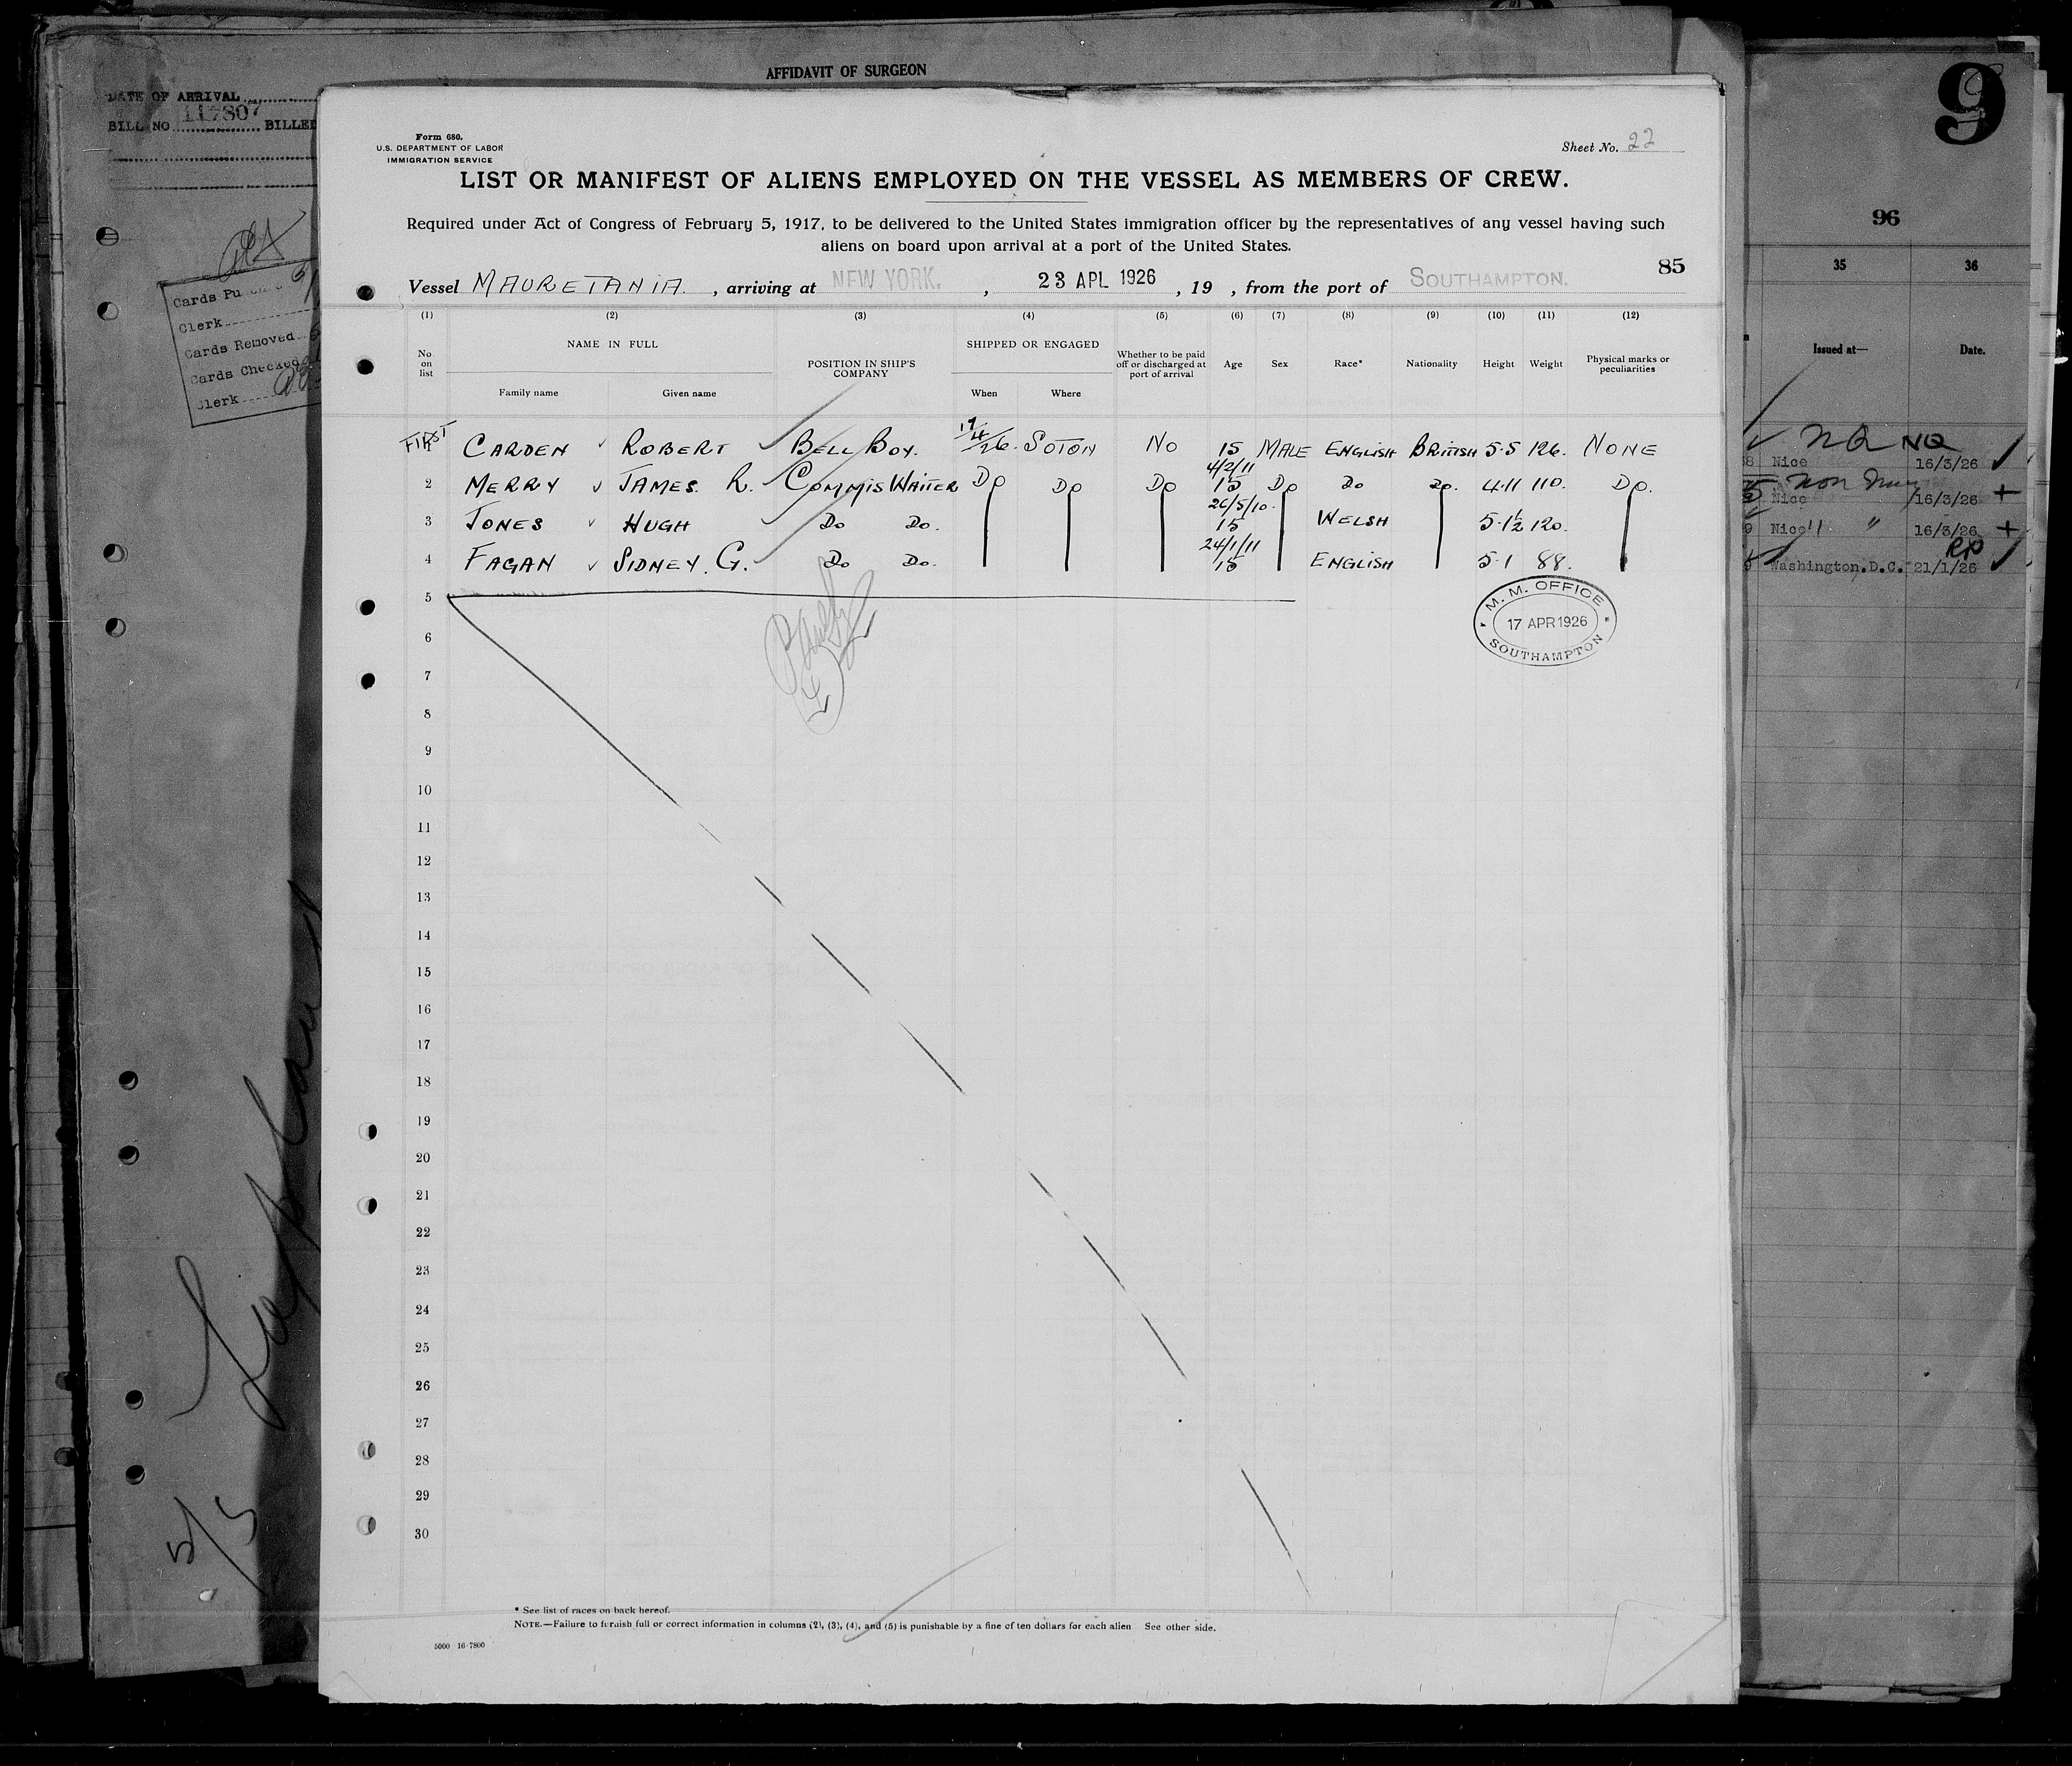 AFFIDAVIT OF SURGEON
DATE OF ARRIVAL
BILL NO 117807 BILLED
Cards Pu
Clerk
Cards Removed
Cards Checked
Clerk
5/5
9
96
35 36
Issued at— Date.
NQ NQ
Nice 16/3/26
Non
Nice 16/3/26 +
Nice " " 16/3/26 +
Washington.D.C. 21/1/26
Form 680.
U.S. DEPARTMENT OF LABOR
IMMIGRATION SERVICE
Sheet No. 22
LIST OR MANIFEST OF ALIENS EMPLOYED ON THE VESSEL AS MEMBERS OF CREW.
Required under Act of Congress of February 5, 1917, to be delivered to the United States immigration officer by the representatives of any vessel having such
aliens on board upon arrival at a port of the United States.
85
Vessel MAURETANIA. , arriving at NEW YORK. , 23 APL 1926 , 19 , from the port of SOUTHAMPTON.
(1) (2) (3) (4) (5) (6) (7) (8) (9) (10) (11) (12)
No on list NAME IN FULL POSITION IN SHIP'S COMPANY SHIPPED OR ENGAGED Whether to be paid off or discharged at port of arrival Age Sex Race* Nationality Height Weight Physical marks or peculiarities
Family name Given name When Where
FIRST
1 CARDEN ROBERT BELL BOY. 17/4/26. SOTON NO 15 MALE ENGLISH BRITISH 5·5 126. NONE
4/2/11
2 MERRY JAMES. R. COMMIS WAITER DO DO DO 15 DO DO DO. 4·11 110. DO.
26/5/10.
3 JONES HUGH DO DO. 15 WELSH 5·1½ 120.
24/1/11
4 FAGAN SIDNEY. G. DO DO. 15 ENGLISH 5·1 88.
5
M. M. OFFICE
17 APR 1926
SOUTHAMPTON
6
7
8
9
10
11
12
13
14
15
16
17
18
19
20
21
22
23
24
25
26
27
28
29
30
* See list of races on back hereof.
NOTE.—Failure to furnish full or correct information in columns (2), (3), (4), and (5) is punishable by a fine of ten dollars for each alien See other side.
5000 16-7800